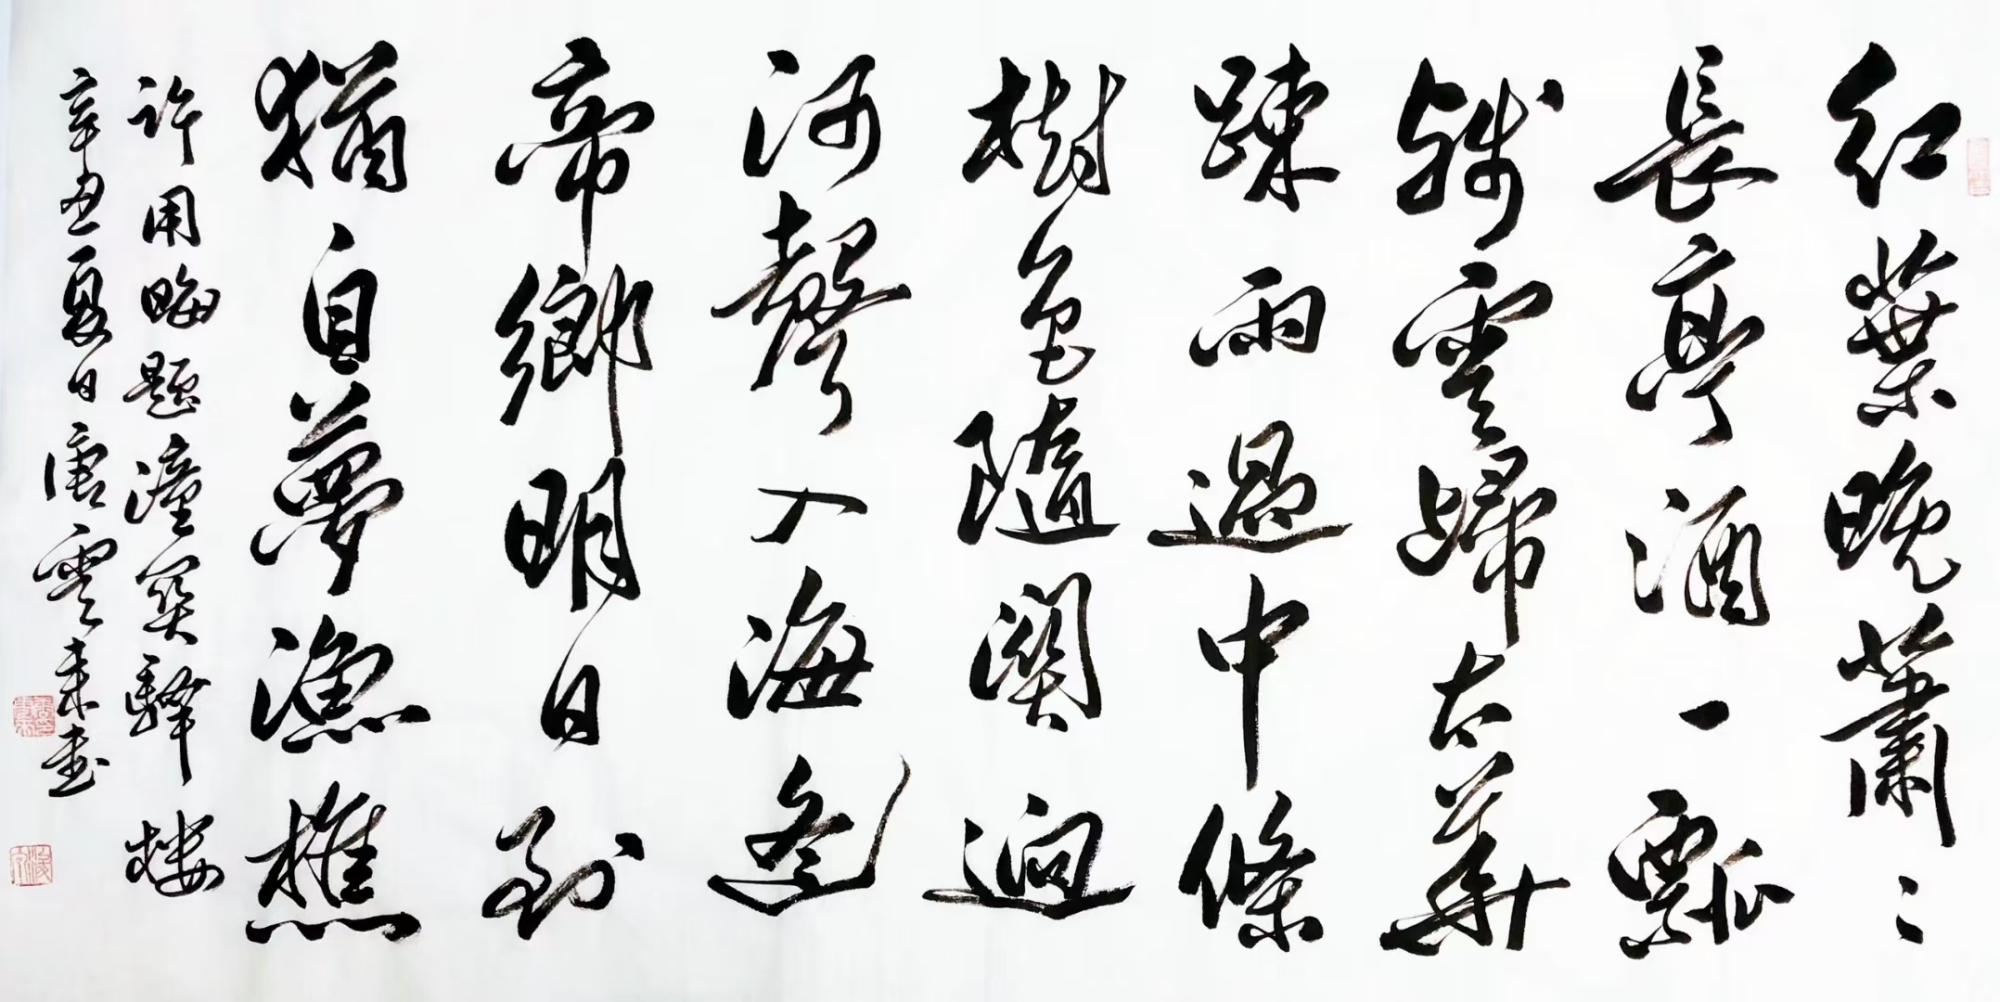 紅葉晚蕭〻
長亭酒一瓢
殘雲歸太華
踈雨過中條
樹色隨關迥
河聲入海遙
帝鄉明日到
猶自夢漁樵
許用晦題潼關驛樓
辛丑夏日唐雲來書